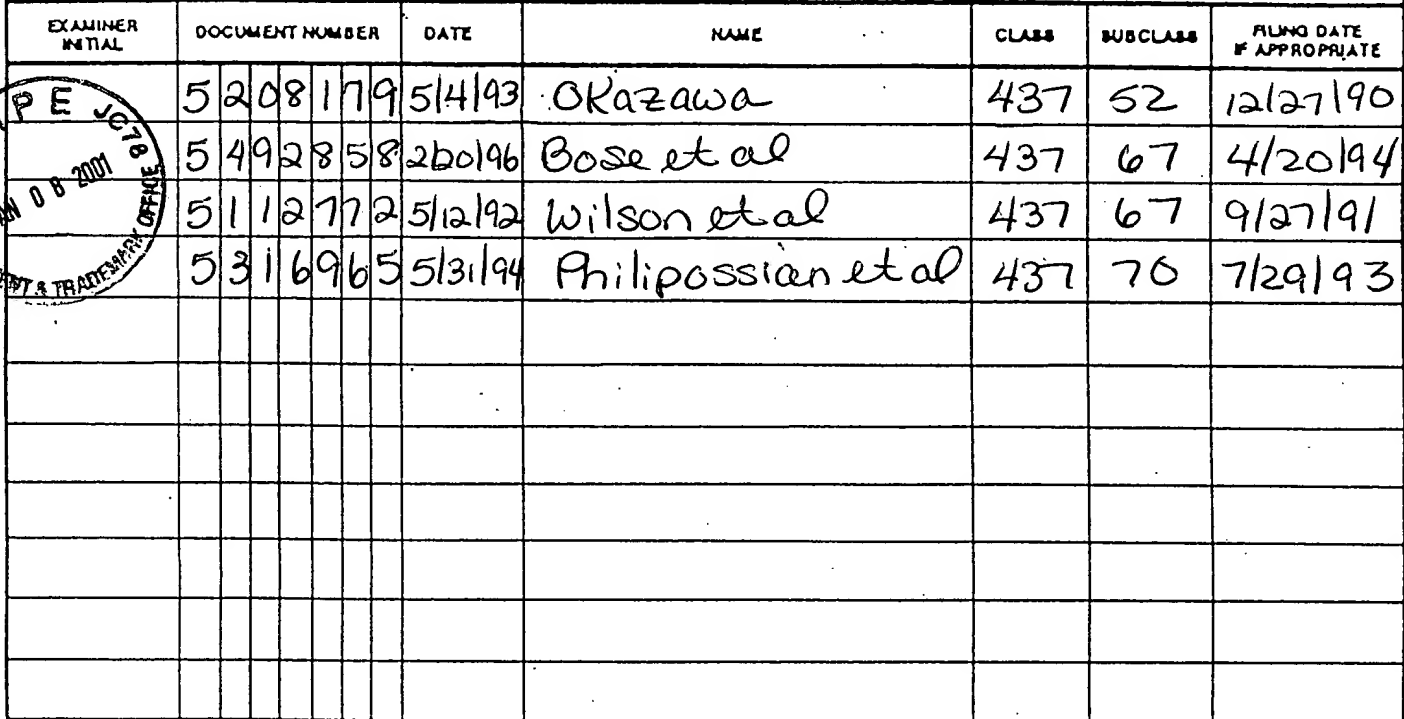 EXAMINER INITIAL DOCUMENT NUMBER DATE NAME CLASS SUBCLASS FILING DATE IF APPROPRIATE
5208179 5/4/93 Okazawa 437 52 12/27/90
5492858 2/20/96 Bose et al 437 67 4/20/94
5112772 5/12/92 Wilson et al 437 67 9/27/91
5316965 5/31/94 Philipossian et al 437 70 7/29/93
P E JC78
08 2001
& TRADEMARK OFFICE